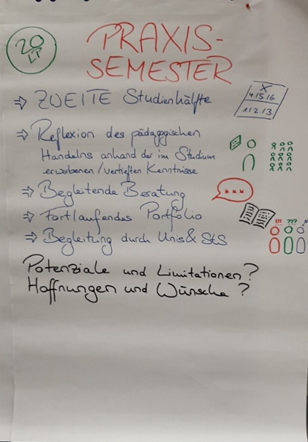 20
LP
PRAXIS-
SEMESTER
⇒ ZWEITE Studienhälfte
X
4.15.16
11.2.13
⇒ Reflexion des pädagogischen
Handelns anhand der im Studium
erworbenen/vertieften Kenntnisse
⇒ Begleitende Beratung
⇒ Fortlaufendes Portfolio
⇒ Begleitung durch Unis & StS
!!! ???
Potenziale und Limitationen?
Hoffnungen und Wünsche?